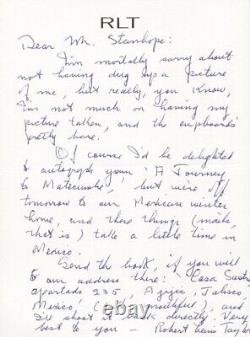 RLT
Dear Mr. Stanhope:
I'm mortally sorry about
not having dug up a picture
of me, but really, you know,
I'm not much on having my
picture taken, and the cupboard's
pretty bare.
Of course I'd be delighted
to autograph your 'A Journey
to Matecumbe', but we're off
tomorrow to our Mexican winter
home, and these things (mails,
that is) take a little time in
Mexico.
Send the book, if you will
to our address there: Casa
apartado 235, Ajijic, Jalisco,
Mexico (a mouthful), and
I'll shoot it back directly. Very
best to you — Robert Lewis Taylor